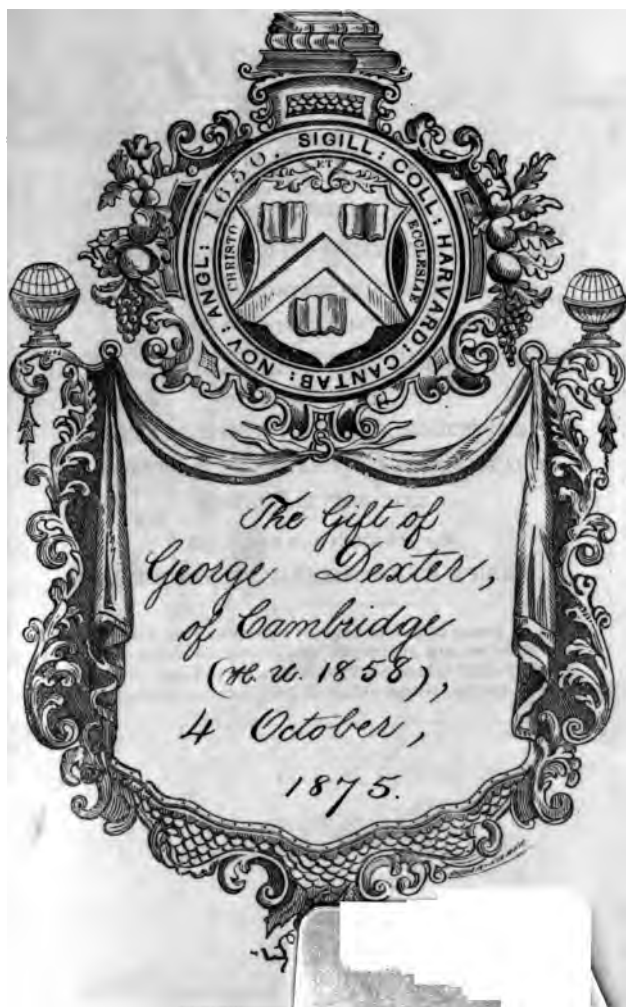 SIGILL: COLL: HARVARD: CANTAB: NOV: ANGL: 1650.
ET
CHRISTO
ECCLESIAE
The Gift of
George Dexter,
of Cambridge
(H. U. 1858),
4 October,
1875.